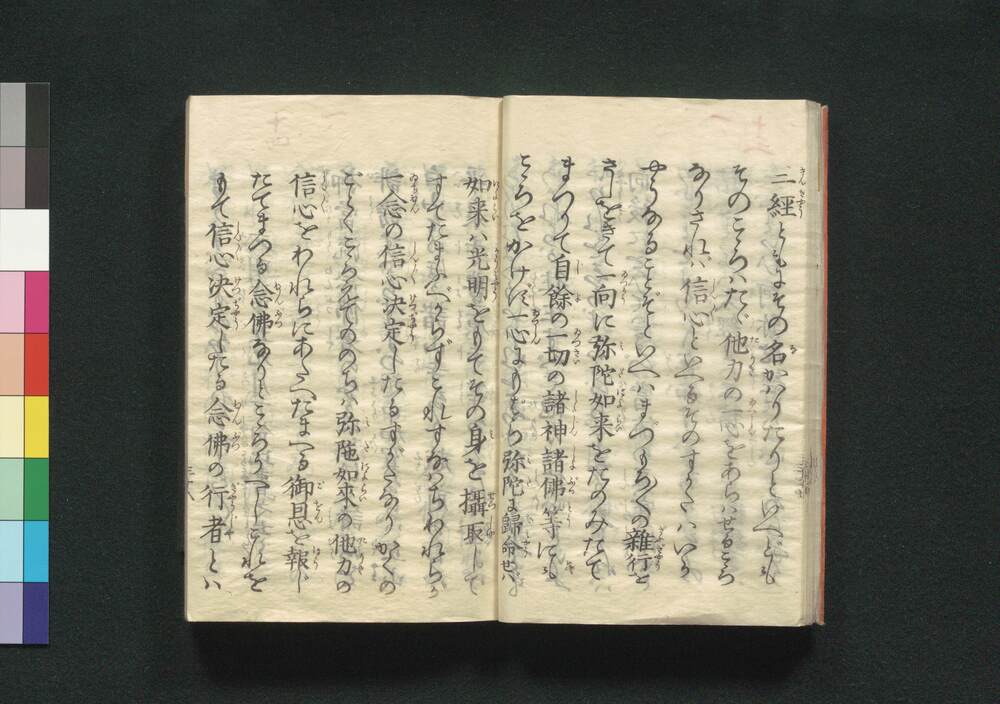 三經ともにその名かはりたりといへども
そのこゝろはたゞ他力の一心をあらはせるこゝろ
なりされば信心といへるそのすがたはいか
やうなることぞといへばまづもろ〳〵の雜行を
さしをきて一向に弥陀如来をたのみたて
まつりて自餘の一切の諸神諸佛等にも
こゝろをかけず一心にもはら弥陀に歸命せば
如来は光明をもてその身を攝取して
すてたまふべからずこれすなはちわれらが
一念の信心决定したるすがたなりかくの
ごとくこゝろえてのゝちは弥陀如来の他力の
信心をわれらにあたへたまへる御恩を報じ
たてまつる念佛なりとこゝろうべしこれを
もて信心决定したる念佛の行者とは